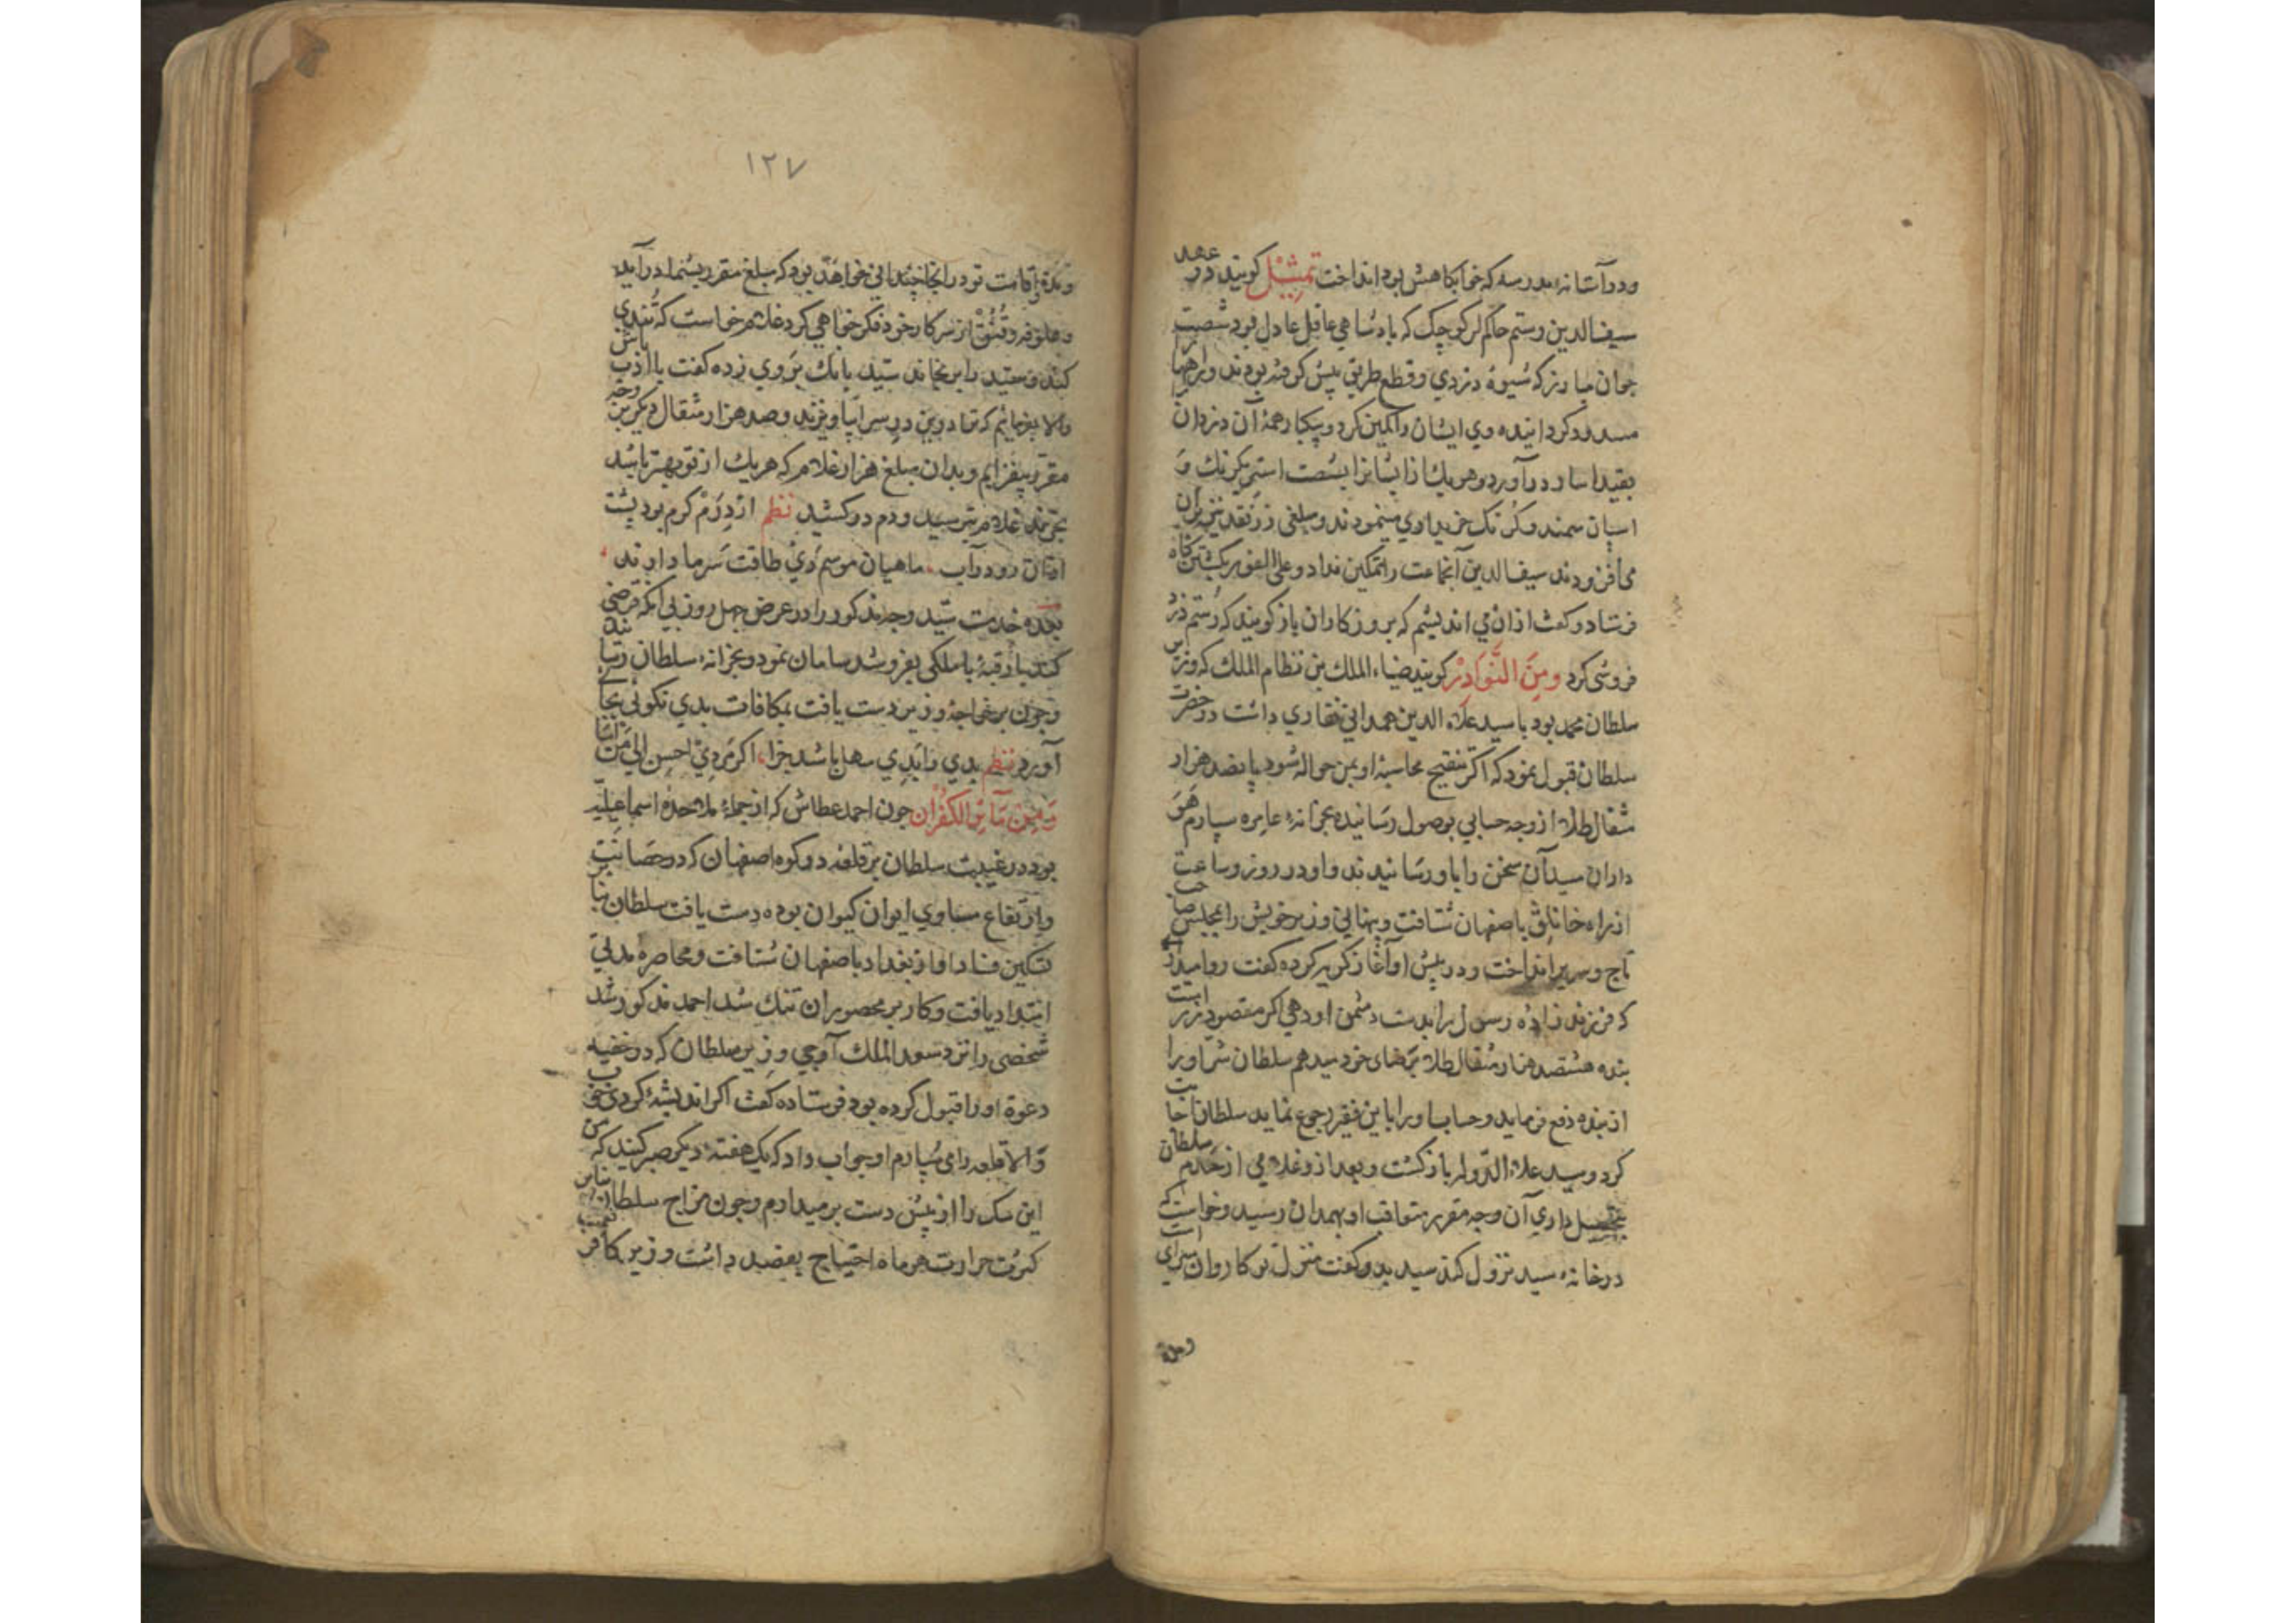 ودر آستانهٔ مدرسه که خوابکاهش بود انداخت تمثیل کویند در عهد
سیف الدین رستم حاکم لر کوچک که بادشاهی عاقل عادل بود شصت
جوان مبارز که شیوهٔ دزدی وقطع طریق پیش کرفته بودند وراهها
مسدود کردانیده وی ایشان را کمین کرد و بیکبار همهٔ آن دزدان
بقید اسار در آورد وهریک از ایشانرا بشصت استر یکرنک و
اسبان سمند وکرنک خریداری مینمودند ومبلغی زر نقد نیز بران
می افزودند سیف الدین آنجماعت را تمکین نداد وعلی الفور بکشتن کاه
فرستاد وکفت ازان می اندیشم که بروزکاران باز کویند که رستم دزد
فروشی کرد ومن النوادر کویند ضیاء الملک بن نظام الملک که وزیر
سلطان محمد بود با سید علاء الدین همدانی نقاری داشت در حضرت
سلطان قبول نمود که اکر تنقیح محاسبهٔ او بمن حواله شود پانصد هزار
مثقال طلا از وجه حسابی بوصول رسانیده بخزانهٔ عامره سپارم هوا
داران سید آن سخن را باو رسانیدند واو در روز وساعت
از راه خانلق باصفهان شتافت وپنهانی وزیر خویش را بمجلس صاحب
تاج وسریر انداخت ودر پیش او آغاز کریه کرده کفت روا میدارد
که فرزند زادهٔ رسول را بدست دشمن او دهی اکر مقصود زر است
بنده هشتصد هزار مثقال طلا برضای خود میدهم سلطان شر اورا
از بنده دفع فرماید وحساب اورا باین فقیر رجوع نماید سلطان اجابت
کرد وسید علاء الدوله باز کشت وبعد ازو غلامی از خدم سلطان
بتحصیل داری آن وجه مقرر متعاقب او بهمدان رسید وخواست که
در خانهٔ سید نزول کند سید بدو کفت منزل تو کاروان سرای است
ومدة
۱۲۷
ومدة اقامت تو در اینجا چندانی خواهد بود که مبلغ مقرر بشما در آید
وعلوفه وقنق از سرکار خود فکر خواهی کرد غلام خواست که تندی
کند وسید را برنجاند سید بانک بر وی زده کفت با ادب باش
والا بفرمایم که ترا درین در سرا بیاویزند وصد هزار مثقال دیکر بر وجه
مقرر بیفزایم وبدان مبلغ هزار غلام که هریک از تو بهتر باشد
بخرند غلام بترسید ودم در کشید نظم از درم کرم بود پشت
ماهیان موسم دی طاقت سرما دارند
بعده خدمت سید وجه مذکور را در عرض چهل روز بی آنکه قرضی
کند یا رقبهٔ یا ملکی بفروشد سامان نمود وبخزانهٔ سلطان رسانید
وچون بر خواجهٔ وزیر دست یافت بمکافات بدی نکوئی بجای
آورد نظم بدی را بدی سهل باشد جزا اکر مردی احسن الی من اسا
ومن مآثر الکفران چون احمد عطاش که از جملهٔ ملاحدهٔ اسماعیلیه
بود در غیبت سلطان بر قلعهٔ دز کوه اصفهان که در حصانت
وارتفاع مساوی ایوان کیوان بوده دست یافت سلطان بنابر
تسکین فساد او از بغداد باصفهان شتافت ومحاصره مدتی
امتداد یافت وکار بر محصوران تنک شد احمد مذکور شد
شخصی را نزد سعد الملک آوجی وزیر سلطان که در خفیه
دعوة اورا قبول کرده بود فرستاده کفت اکر اندیشهٔ کردی خوب
والا قلعه را می سپارم او جواب داد که یک هفتهٔ دیکر صبر کنید که من
این سک را از پیش دست بر میدارم وچون مزاج سلطان بنابر
کثرت حرارت هر ماه احتیاج بفصد داشت وزیر کافر نعمت